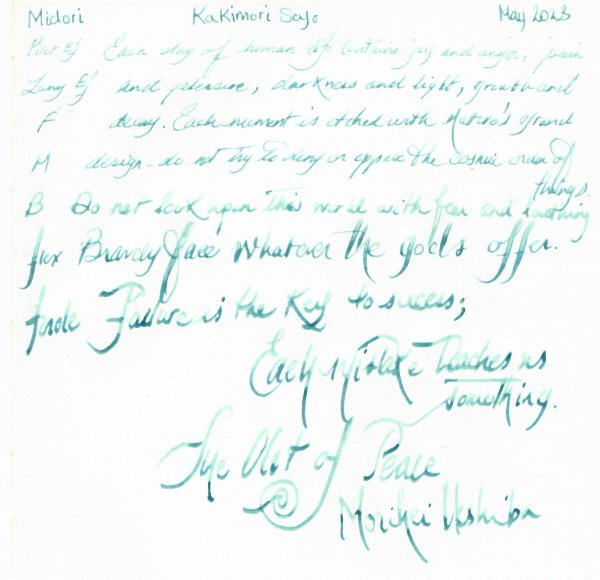 Midori Kakimori Sojo May 2023
Pilot Ef Each day of human life contains joy and anger, pain
Lamy Ef and pleasure, darkness and light, growth and
F decay. Each moment is etched with Nature's grand
M design - do not try to deny or oppose the cosmic order of
things.
B Do not look upon this world with fear and loathing
flex Bravely face whatever the gods offer.
fude Failure is the Key to success;
Each mistake teaches us
something.
The Art of Peace
Morihei Ueshiba